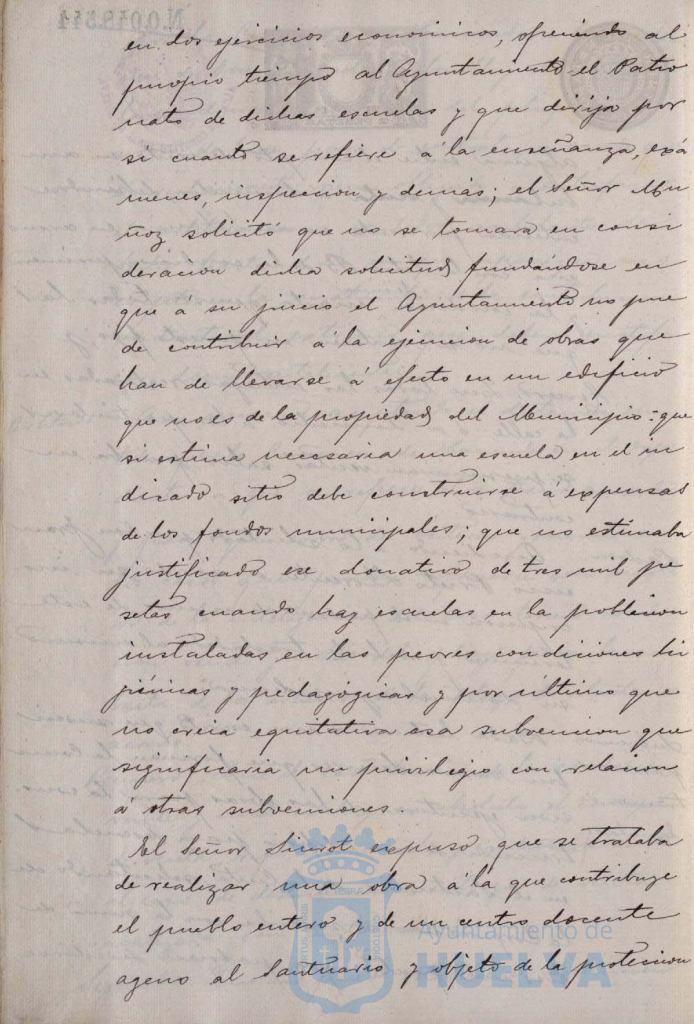 en dos ejercicios economicos, ofreciendo al
propio tiempo al Ayuntamiento el Patro
nato de dichas escuelas y que dirija por
si cuanto se refiere á la enseñanza, exá
menes, inspeccion y demás; el Señor Mu
ñoz solicitó que no se tomara en consi
deracion dicha solicitud fundándose en
que á su juicio el Ayuntamiento no pue
de contribuir á la ejecucion de obras que
han de llevarse á efecto en un edificio
que no es de la propiedad del Municipio: que
si estima necesaria una escuela en el in
dicado sitio debe construirse á expensas
de los fondos municipales; que no estimaba
justificado ese donativo de tres mil pe
setas cuando hay escuelas en la poblacion
instaladas en las peores condiciones hi
jiénicas y pedagógicas y por último que
no creia equitativa esa subvencion que
significaria un privilegio con relacion
á otras subvenciones.
El Señor Siurot expuso que se trataba
de realizar una obra á la que contribuye
el pueblo entero y de un centro docente
ageno al Santuario y objeto de la proteccion
Ayuntamiento de
HUELVA